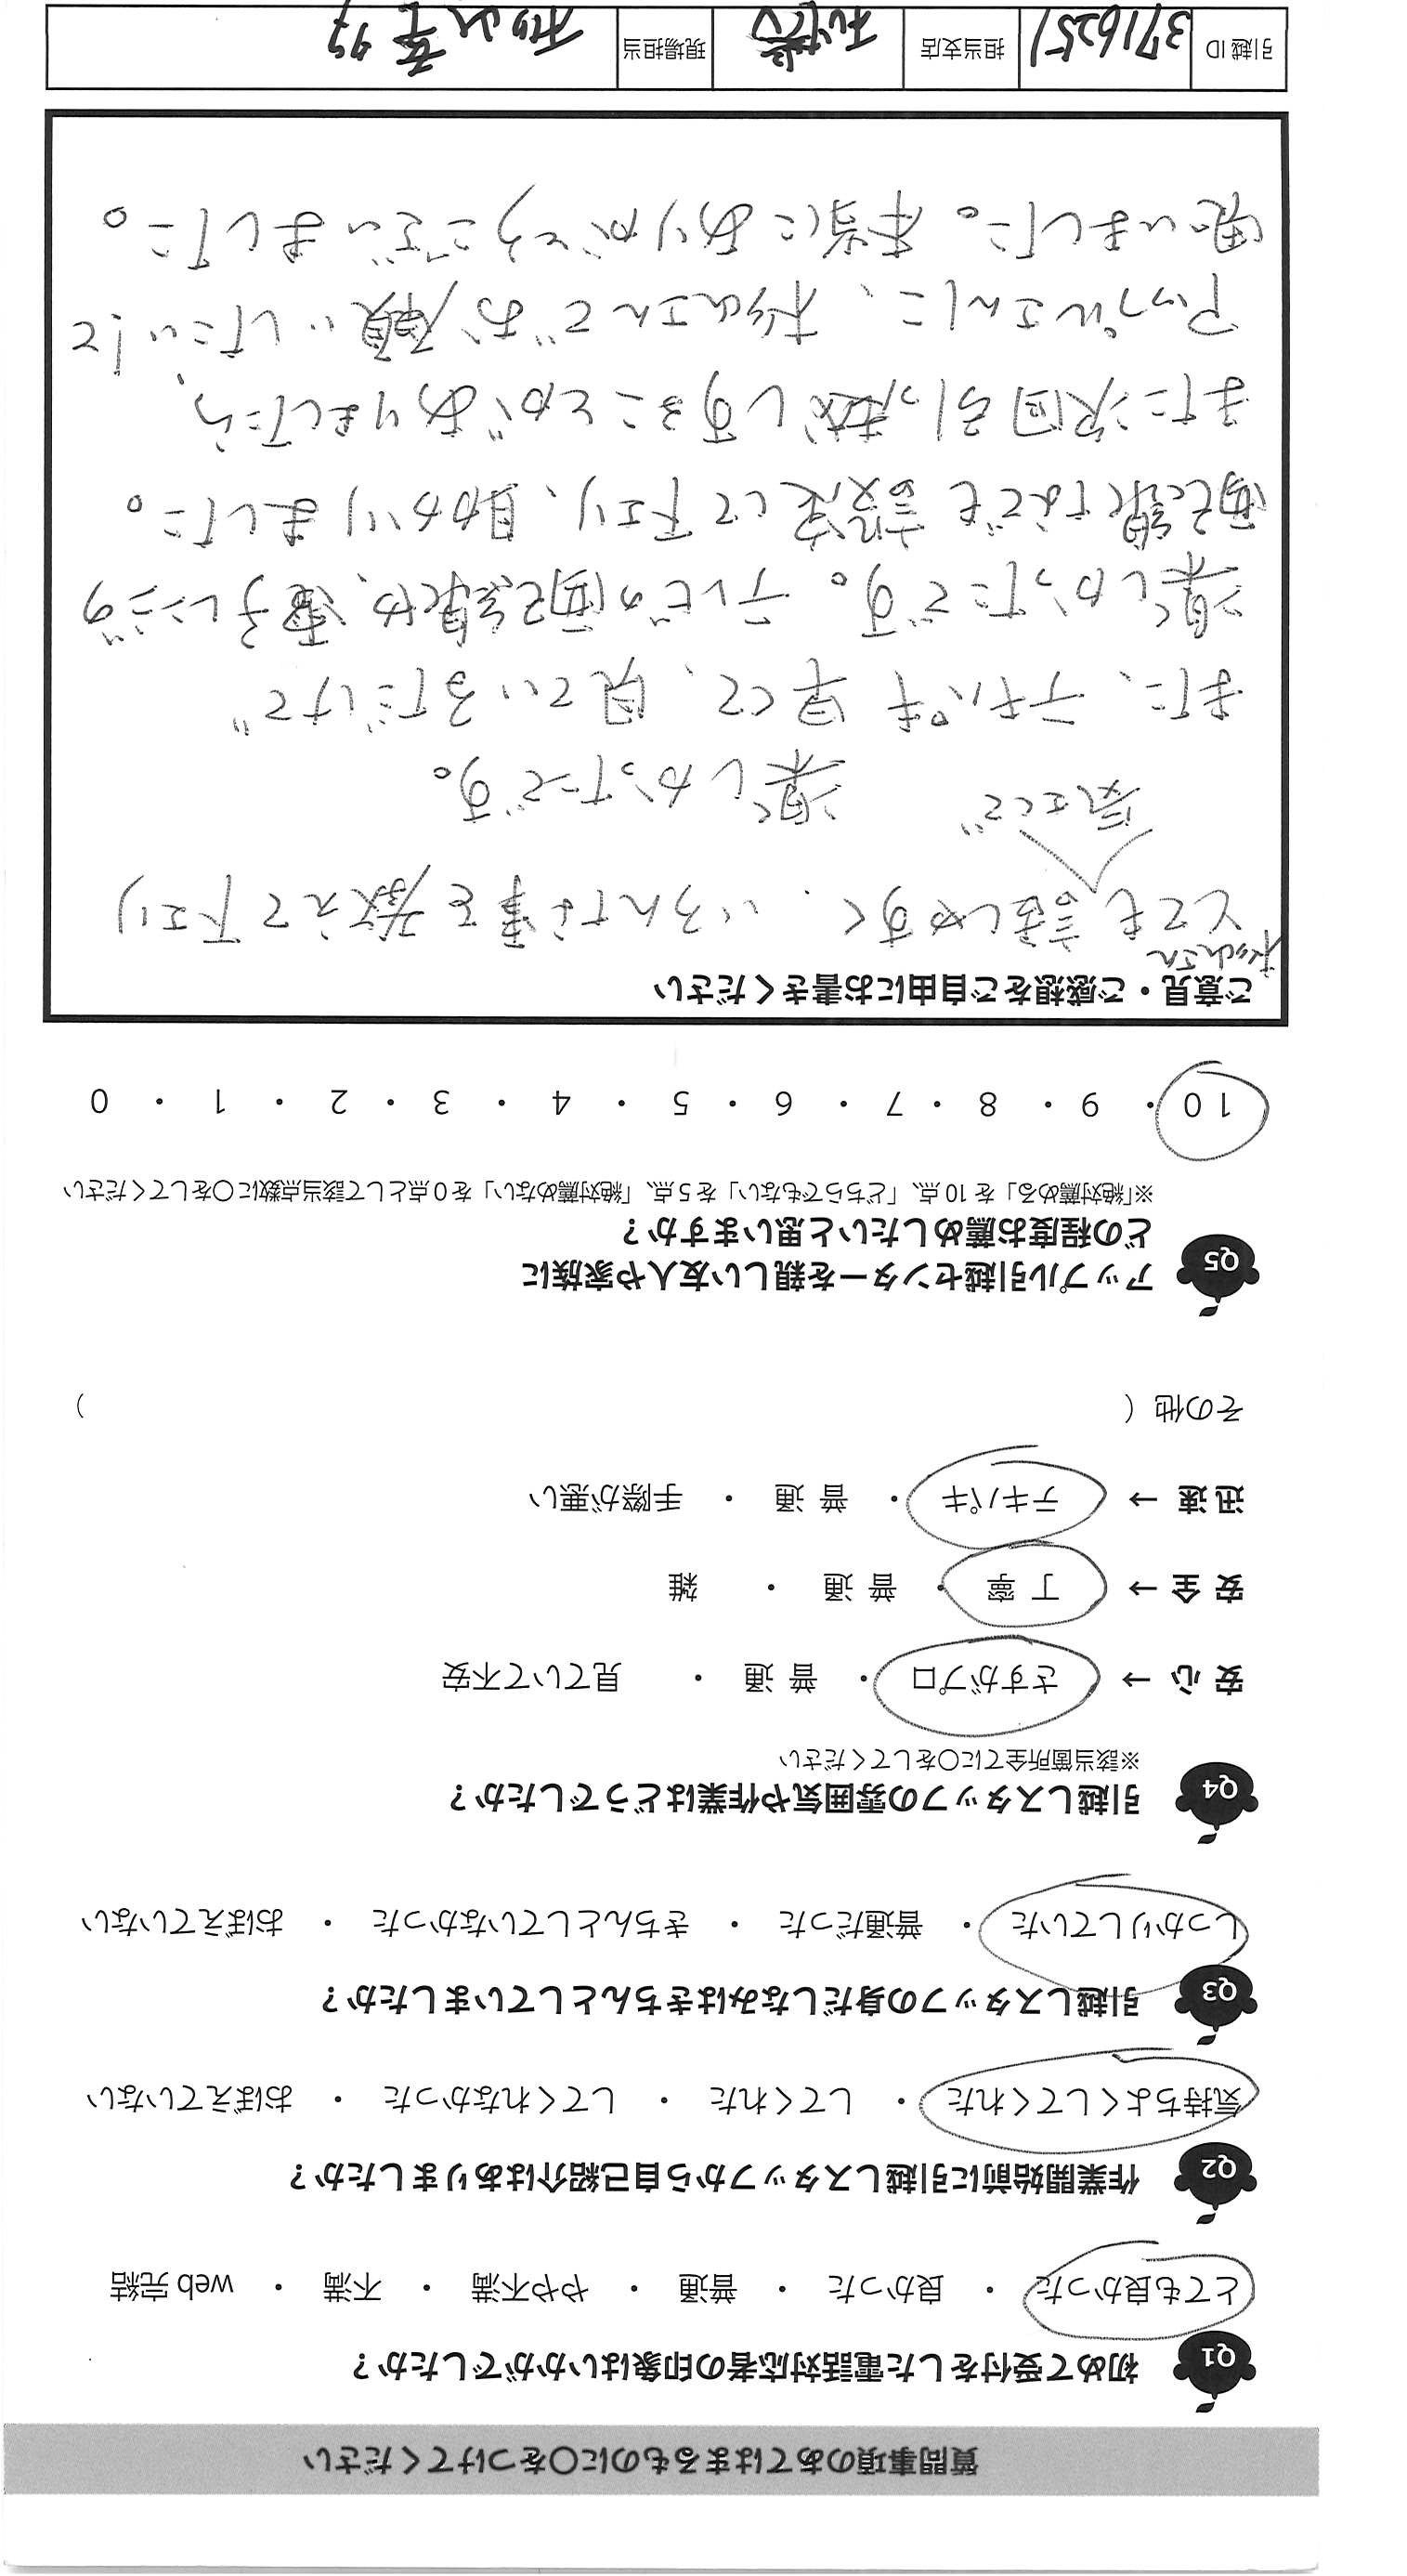 質問事項のあてはまるものに〇をつけてください
Q1 初めて受付をした電話対応者の印象はいかがでしたか？
とても良かった ・ 良かった ・ 普通 ・ やや不満 ・ 不満 ・ web 完結
Q2 作業開始前に引越しスタッフから自己紹介はありましたか？
気持ちよくしてくれた ・ してくれた ・ してくれなかった ・ おぼえていない
Q3 引越しスタッフの身だしなみはきちんとしていましたか？
しっかりしていた ・ 普通だった ・ きちんとしていなかった ・ おぼえていない
Q4 引越しスタッフの雰囲気や作業はどうでしたか？
※該当箇所全てに〇をしてください
安 心 → さすがプロ ・ 普 通 ・ 見ていて不安
安 全 → 丁 寧 ・ 普 通 ・ 雑
迅 速 → テキパキ ・ 普 通 ・ 手際が悪い
その他（ ）
Q5 アップル引越センターを親しい友人や家族に
どの程度お薦めしたいと思いますか？
※「絶対薦める」を 10 点、「どちらでもない」を 5 点、「絶対薦めない」を 0 点として該当点数に〇をしてください
10 ・ 9 ・ 8 ・ 7 ・ 6 ・ 5 ・ 4 ・ 3 ・ 2 ・ 1 ・ 0
ご意見・ご感想をご自由にお書きください
松山さん
とても話しやすく、いろんな事を教えて下さり
気さくで 楽しかったです。
また、テキパキ早くて、見ているだけで
楽しかったです。テレビの配線や、電子レンジの
配線なども設定して下さり、助かりました。
また次回引っ越しすることがありましたら、
アップルさんに、松山さんでお願いしたいと
思いました。本当にありがとうございました。
引越 ID 3716251 担当支店 札幌 現場担当 松山